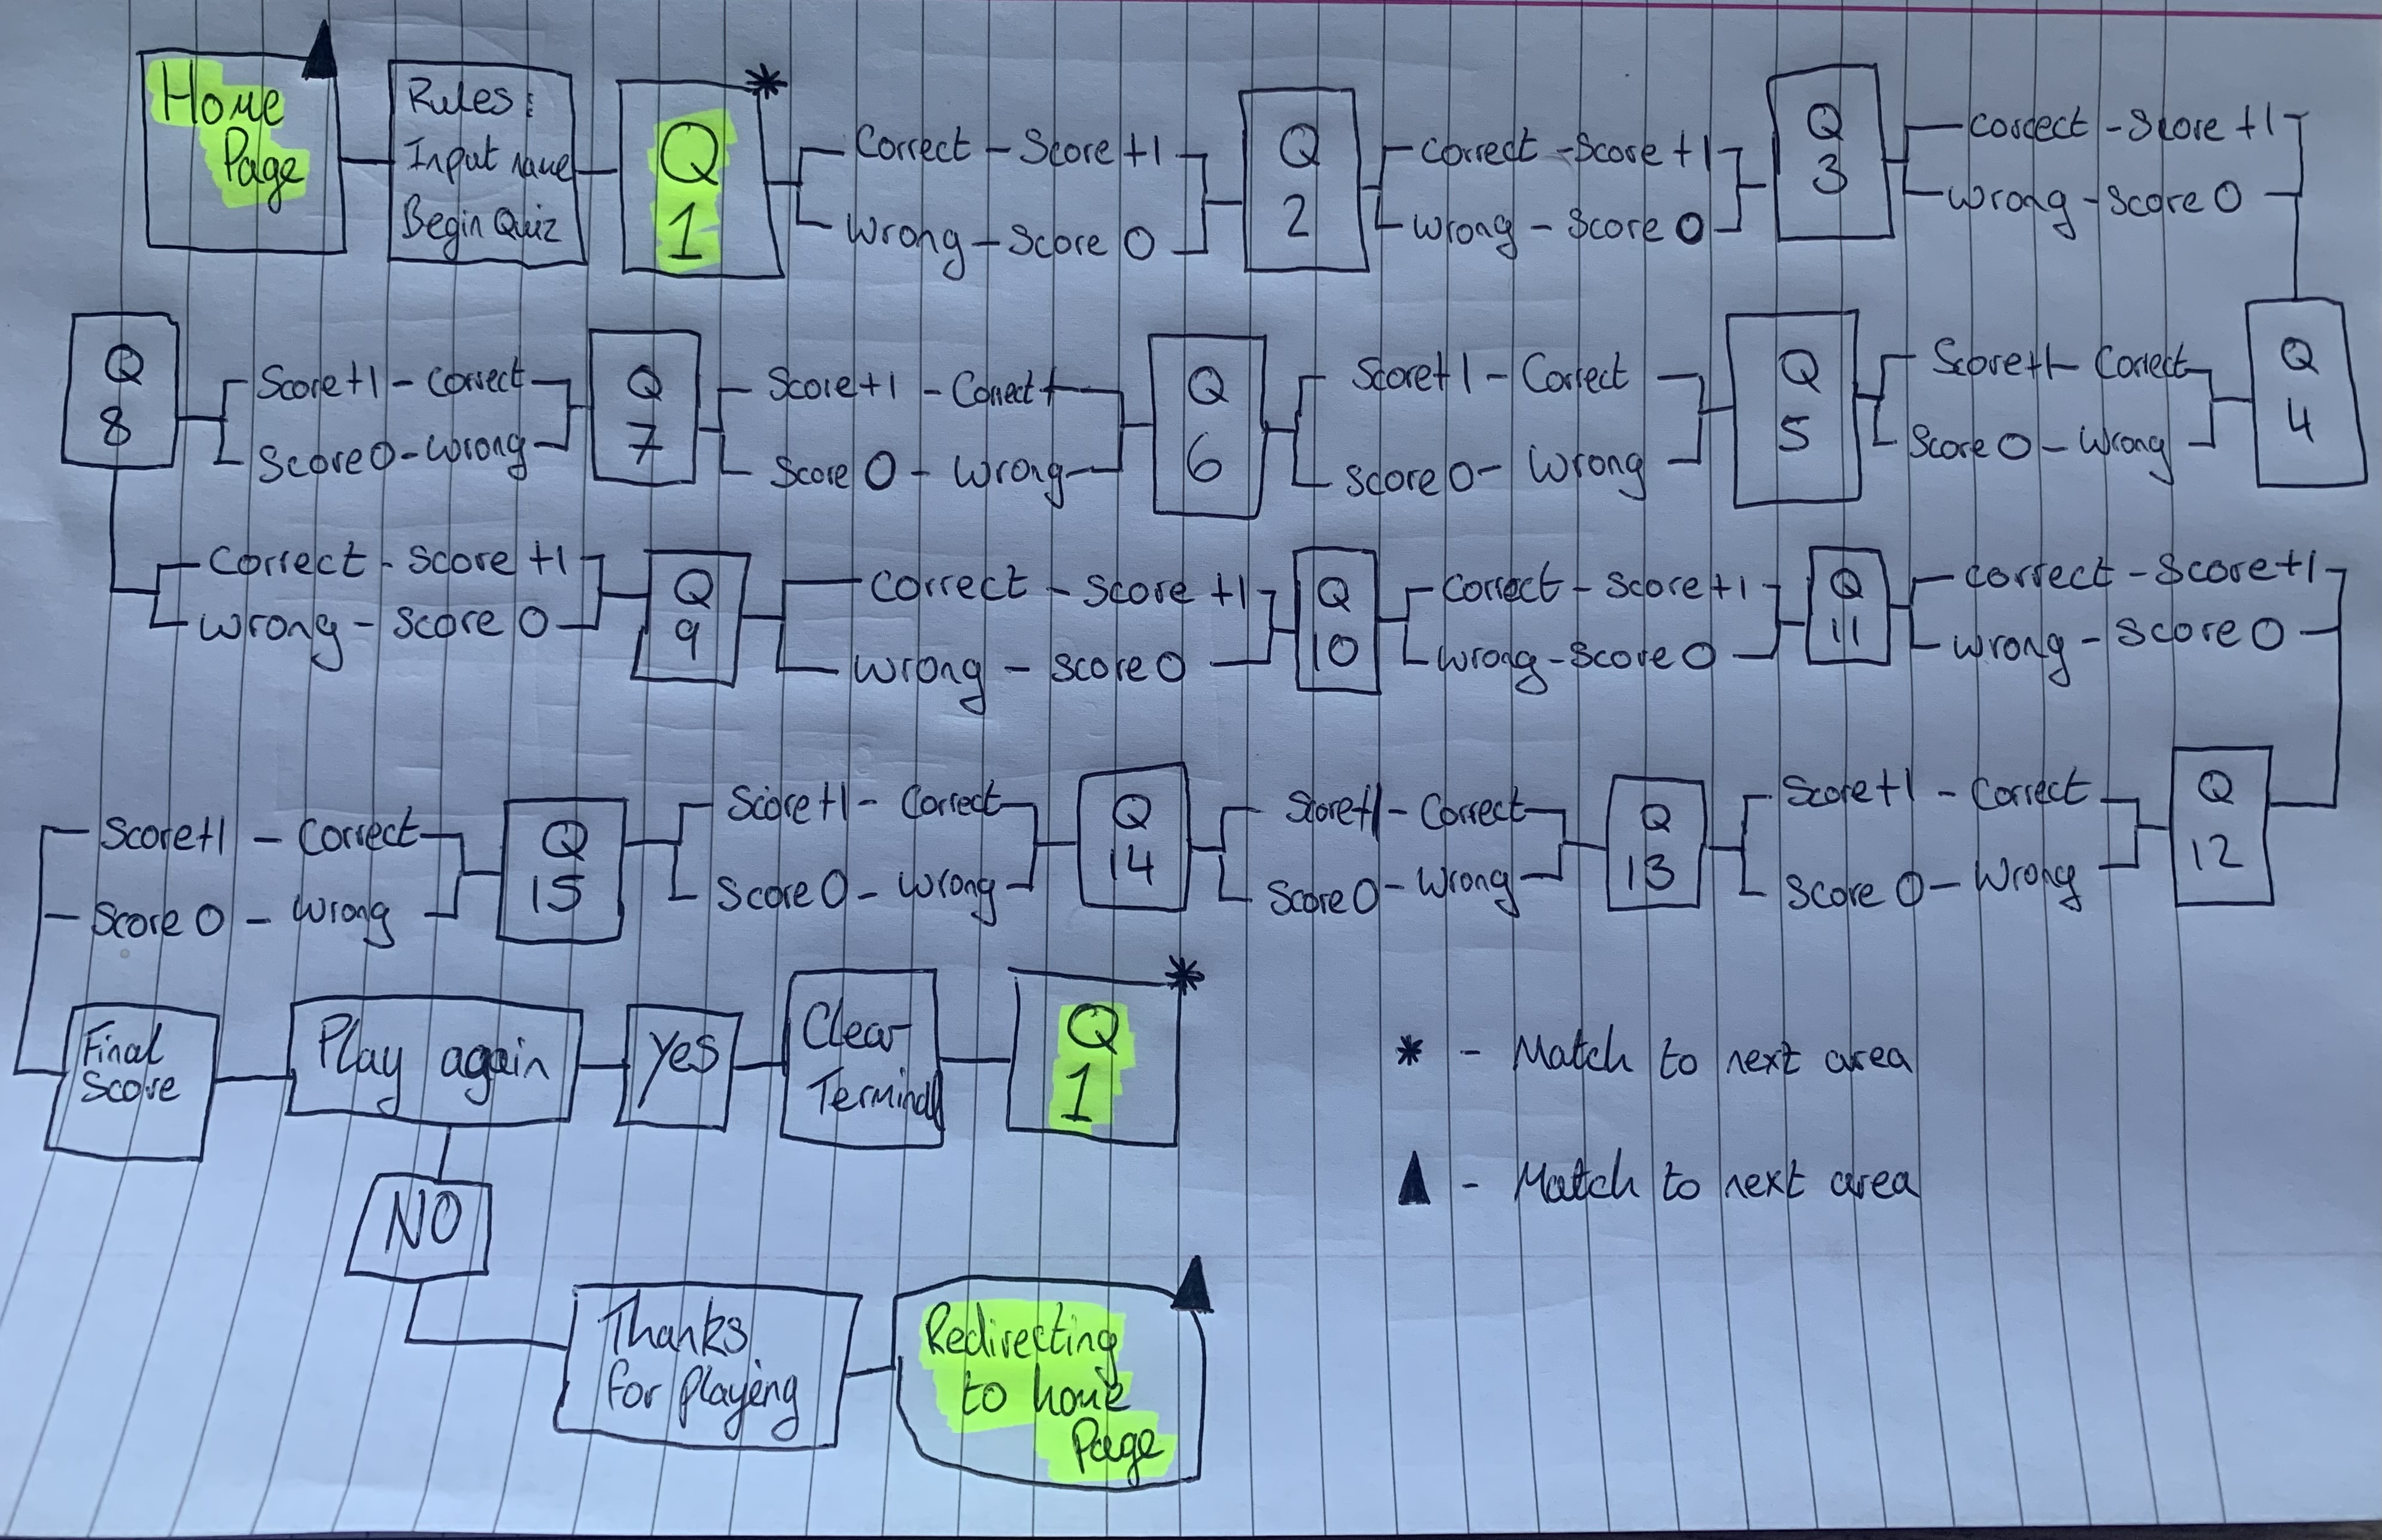 Home
Page
Rules:
Input name
Begin Quiz
Q
1
*
Correct - Score +1
Wrong - Score 0
Q
2
Correct - Score +1
Wrong - Score 0
Q
3
Correct - Score +1
Wrong - Score 0
Q
4
Score+1 - Correct
Score 0 - Wrong
Q
5
Score+1 - Correct
Score 0 - Wrong
Q
6
Score+1 - Correct
Score 0 - Wrong
Q
7
Score+1 - Correct
Score 0 - Wrong
Q
8
Correct - Score +1
Wrong - Score 0
Q
9
Correct - Score +1
Wrong - Score 0
Q
10
Correct - Score +1
Wrong - Score 0
Q
11
Correct - Score +1
Wrong - Score 0
Q
12
Score+1 - Correct
Score 0 - Wrong
Q
13
Score+1 - Correct
Score 0 - Wrong
Q
14
Score+1 - Correct
Score 0 - Wrong
Q
15
Score+1 - Correct
Score 0 - Wrong
Final
Score
Play again
Yes
Clear
Terminal
Q
1
*
* - Match to next area
▲ - Match to next area
NO
Thanks
for playing
Redirecting
to home
Page